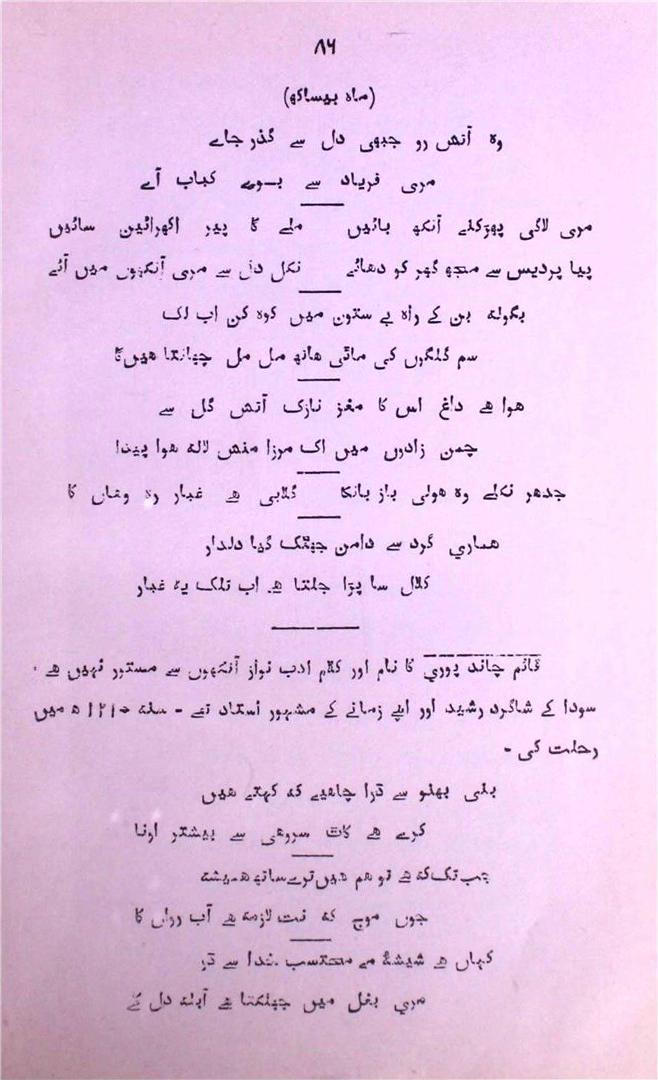 ۸۶
(ماہ بیساکھ)
وہ آتش رو جبھی دل سے گذر جاے
مری فریاد سے بوے کباب آے
مری لاگی پھڑکنے آنکھ بائیں ملے گا پیر اکھرائین سائیں
پیا پردیس سے مجھ گھر کو دھائے نکل دل سے مری آنکھوں میں آئے
بگولہ بن کے راہ بے ستون میں کوہ کن اب لک
سم گلگوں کی ماٹی ھاتھ مل مل چھانتا ھیں گا
ھوا ھے داغ اس کا مغز نازک آتش گل سے
چمن زادوں میں اک مرزا منش لالہ ھوا پیدا
جدھر نکلے وہ ھولی باز بانکا گلابی ھے غبار رہ وھاں کا
ھماری گرد سے دامن جھٹک گیا دلدار
کلال سا پڑا جلتا ھے اب تلک یہ غبار
قائم چاند پوری کا نام اور کلام ادب نواز آنکھوں سے مستور نہیں ھے ۔
سودا کے شاگرد رشید اور اپے زمانے کے مشہور استاد تھے - سنہ ۱۲۱۰ ھ میں
رحلت کی -
بلی بھلو سے ذرا چاھیے کہ کہتے ھیں
کرے ھے کاٹ سروھی سے بیشتر اونا
جب تک کہ ھے تو ھم ھیں ترے ساتھ ھمیشہ
جوں موج کہ نت لازمہ ھے آب رواں کا
کہاں ھے شیشۂ مے محتسب خدا سے ڈر
مری بغل میں جھلکتا ھے آبلہ دل کے